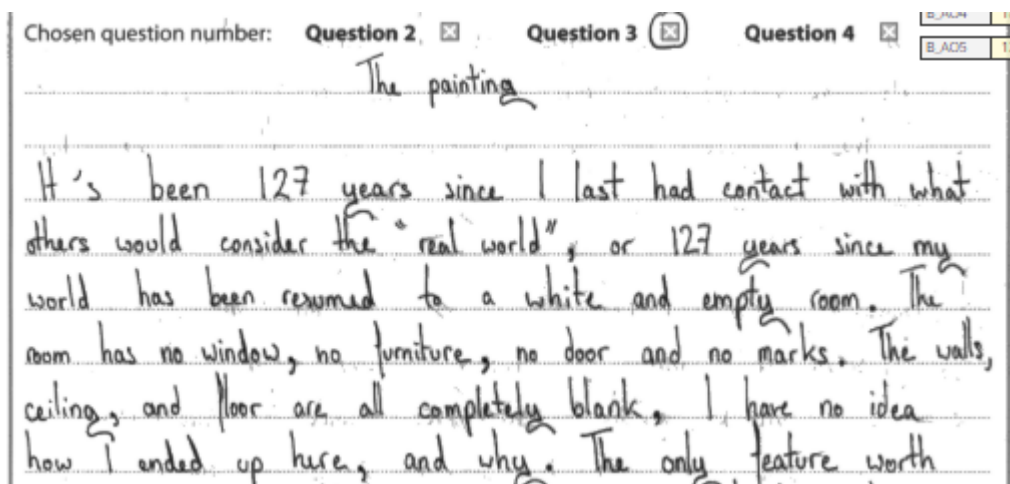 Chosen question number: Question 2 ☒ Question 3 ☒ Question 4 ☒
B_AO5
The painting
It's been 127 years since I last had contact with what
others would consider the "real world", or 127 years since my
world has been resumed to a white and empty room. The
room has no window, no furniture, no door and no marks. The walls,
ceiling, and floor are all completely blank, I have no idea
how I ended up here, and why. The only feature worth